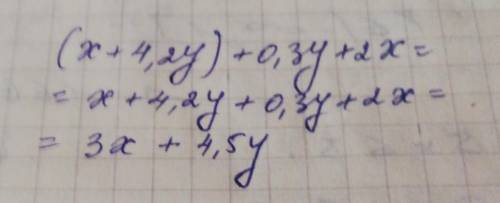 (x + 4,2y) + 0,3y + 2x =
= x + 4,2y + 0,3y + 2x =
= 3x + 4,5y